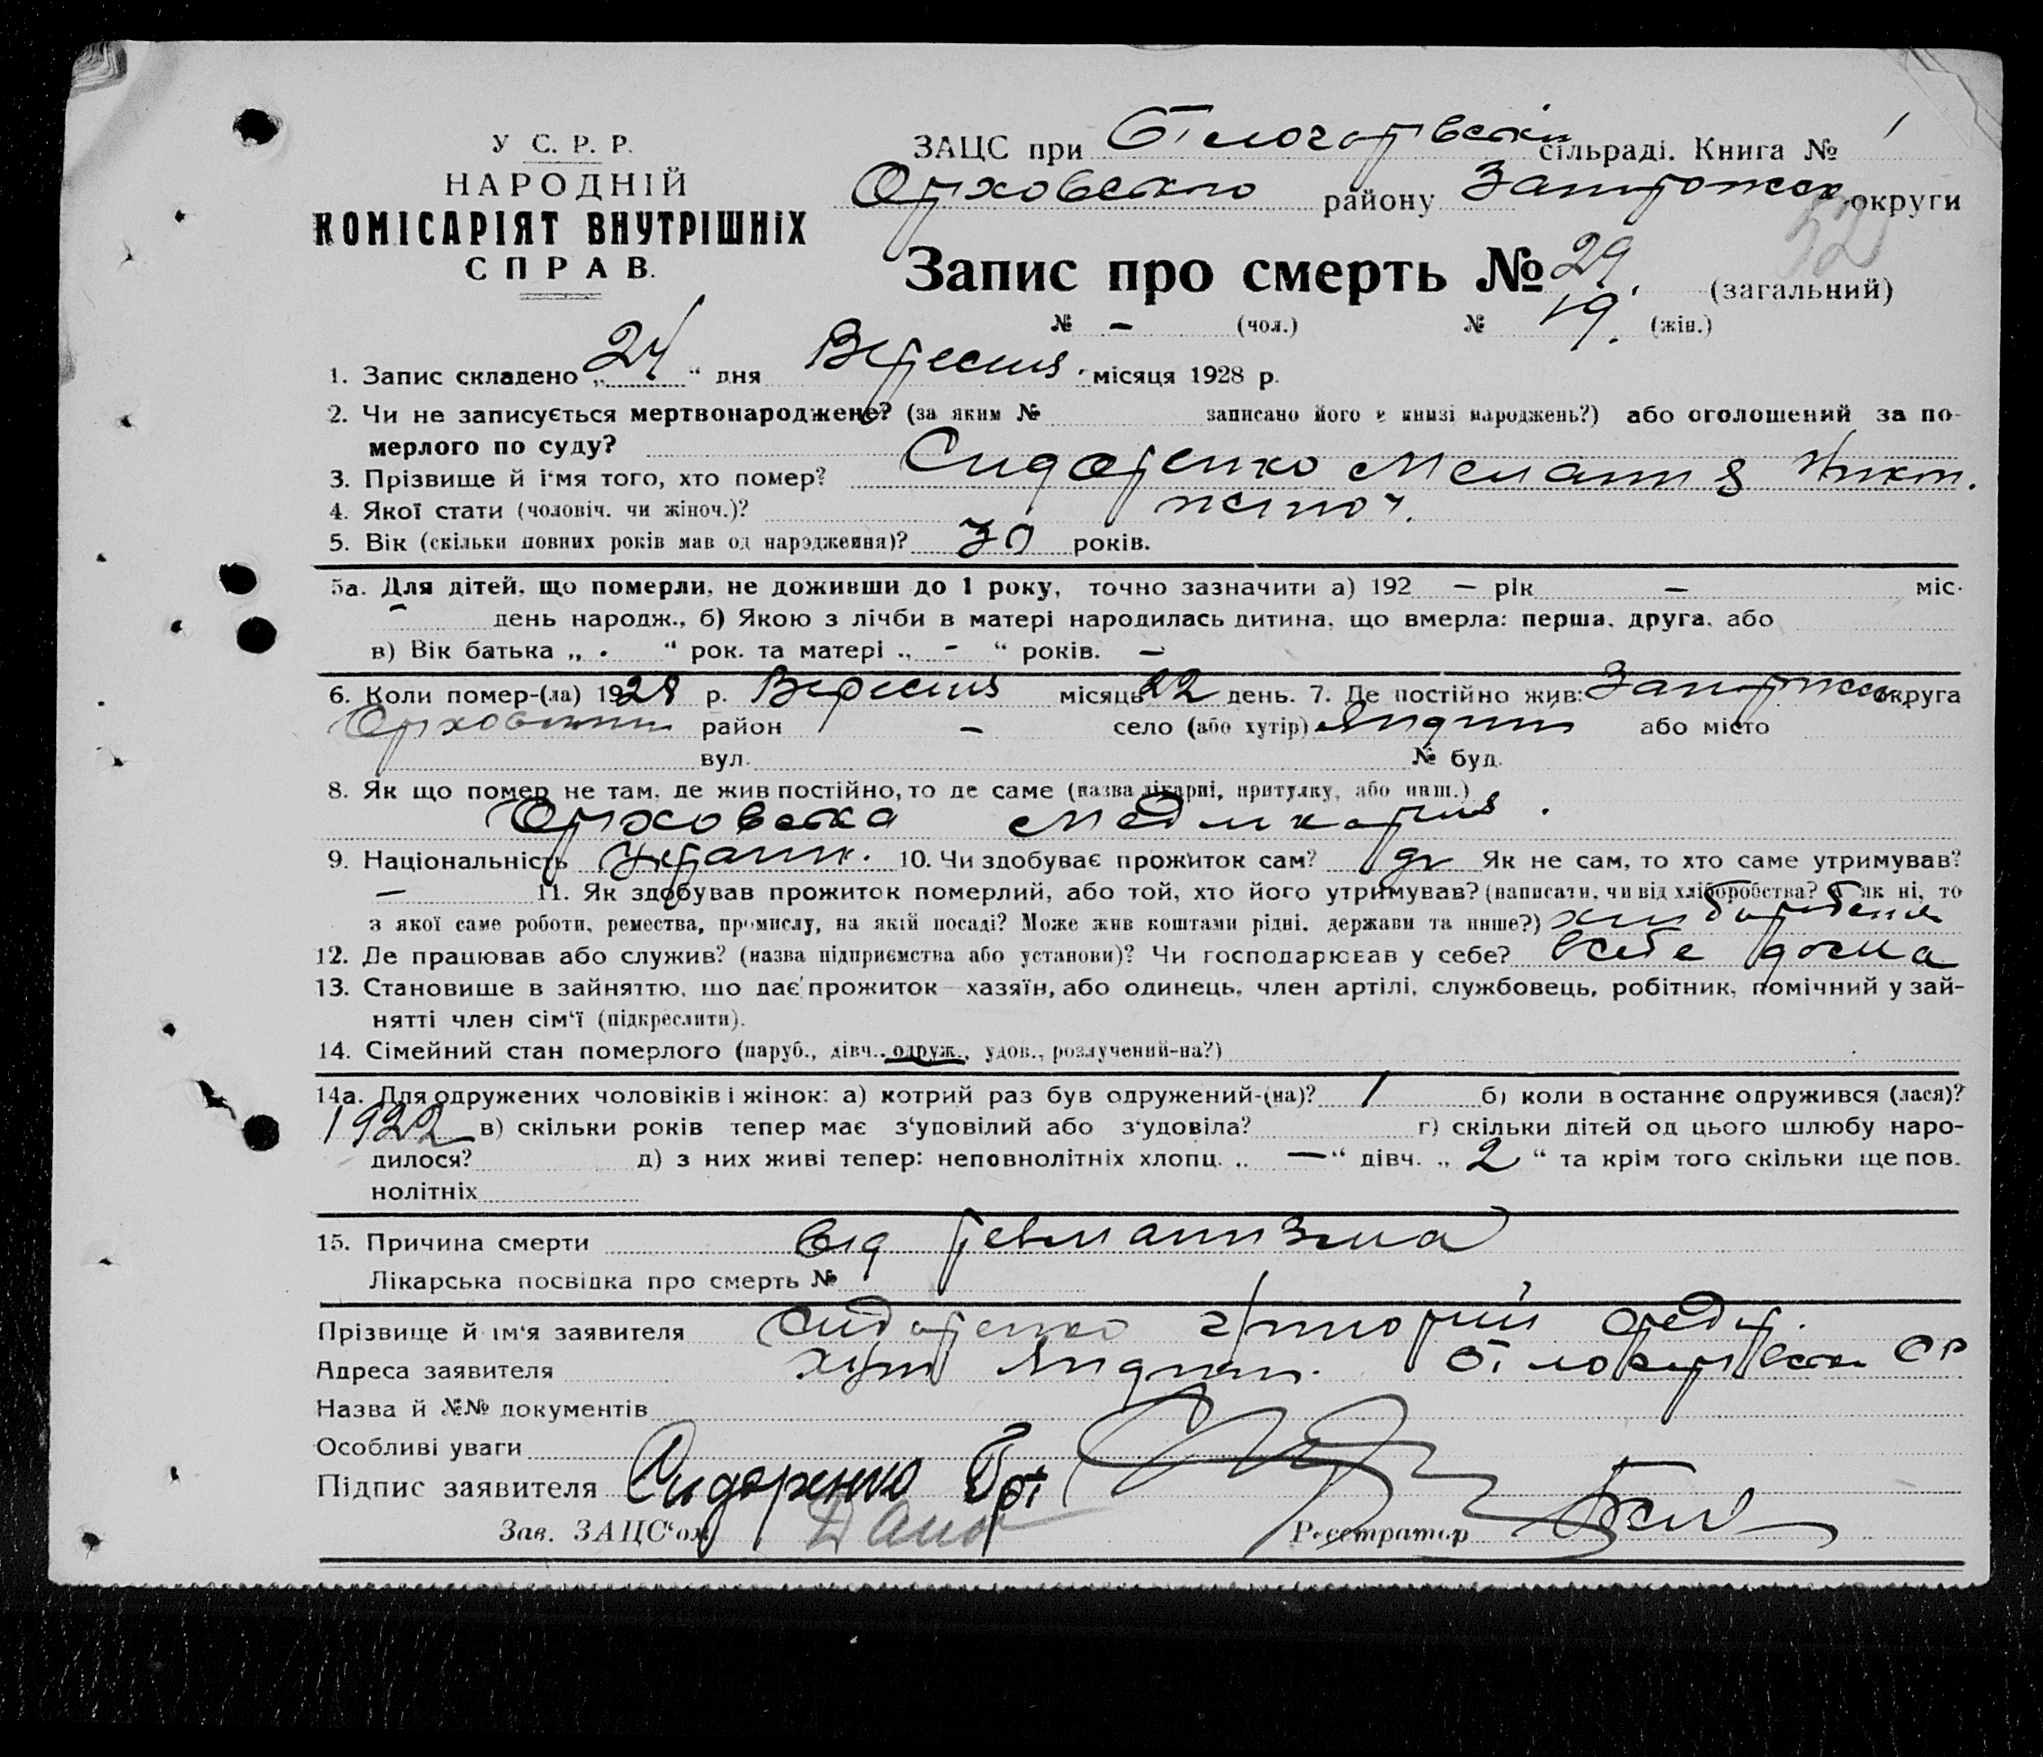 У С. Р. Р.
НАРОДНІЙ
КОМІСАРІЯТ ВНУТРІШНІХ
СПРАВ.
ЗАЦС при сільраді. Книга № 1
Оріховского району Запоріжск округи
52
Запис про смерть № 29. (загальний)
№ – (чол.) № 19. (жін.)
1. Запис складено „24“ дня Вересня місяця 1928 р.
2. Чи не записується мертвонароджене? (за яким № записано його в книзі народжень?) або оголошений за по-
мерлого по суду?
3. Прізвище й ім'я того, хто помер? Сидоренко Мелания Никит.
4. Якої стати (чоловіч. чи жіноч.)? жіноч.
5. Вік (скільки повних років мав од народження)? 30 років.
5а. Для дітей, що померли, не доживши до 1 року, точно зазначити а) 192 – рік – міс.
– день народж., б) Якою з лічби в матері народилась дитина, що вмерла: перша, друга, або
в) Вік батька „ . “ рок. та матері „ - “ років. –
6. Коли помер-(ла) 1928 р. Вересня місяць 22 день. 7. Де постійно жив: Запоріжск округа
район – село (або хутір) або місто
вул. № буд.
8. Як що помер не там, де жив постійно, то де саме (назва лікарні, притулку, або инш.)
Оріховска
9. Національність Україн. 10. Чи здобуває прожиток сам? да Як не сам, то хто саме утримував?
– 11. Як здобував прожиток померлий, або той, хто його утримував? (написати, чи від хліборобства? а як ні, то
з якої саме роботи, ремества, промислу, на якій посаді? Може жив коштами рідні, держави та инше?)
12. Де працював або служив? (назва підприємства або установи)? Чи господарював у себе? в себе дома
13. Становище в зайняттю, що дає прожиток—хазяїн, або одинець, член артілі, службовець, робітник, помічний у зай-
нятті член сім'ї (підкреслити).
14. Сімейний стан померлого (паруб., дівч., одруж., удов., розлучений-на?)
14а. Для одружених чоловіків і жінок: а) котрий раз був одружений-(на)? 1 б) коли в останнє одружився (лася)?
1922 в) скільки років тепер має з'уповілий або з'удовіла? г) скільки дітей од цього шлюбу наро-
дилося? д) з них живі тепер: неповнолітніх хлопц. „ – “ дівч. „ 2 “ та крім того скільки ще пов.
нолітніх
15. Причина смерти від ревматизма
Лікарська посвідка про смерть №
Прізвище й ім'я заявителя Сидоренко Григорий Федор.
Адреса заявителя хут
Назва й №№ документів
Особливі уваги
Підпис заявителя Сидоренко Гр
Зав. ЗАЦС'ом Реєстратор